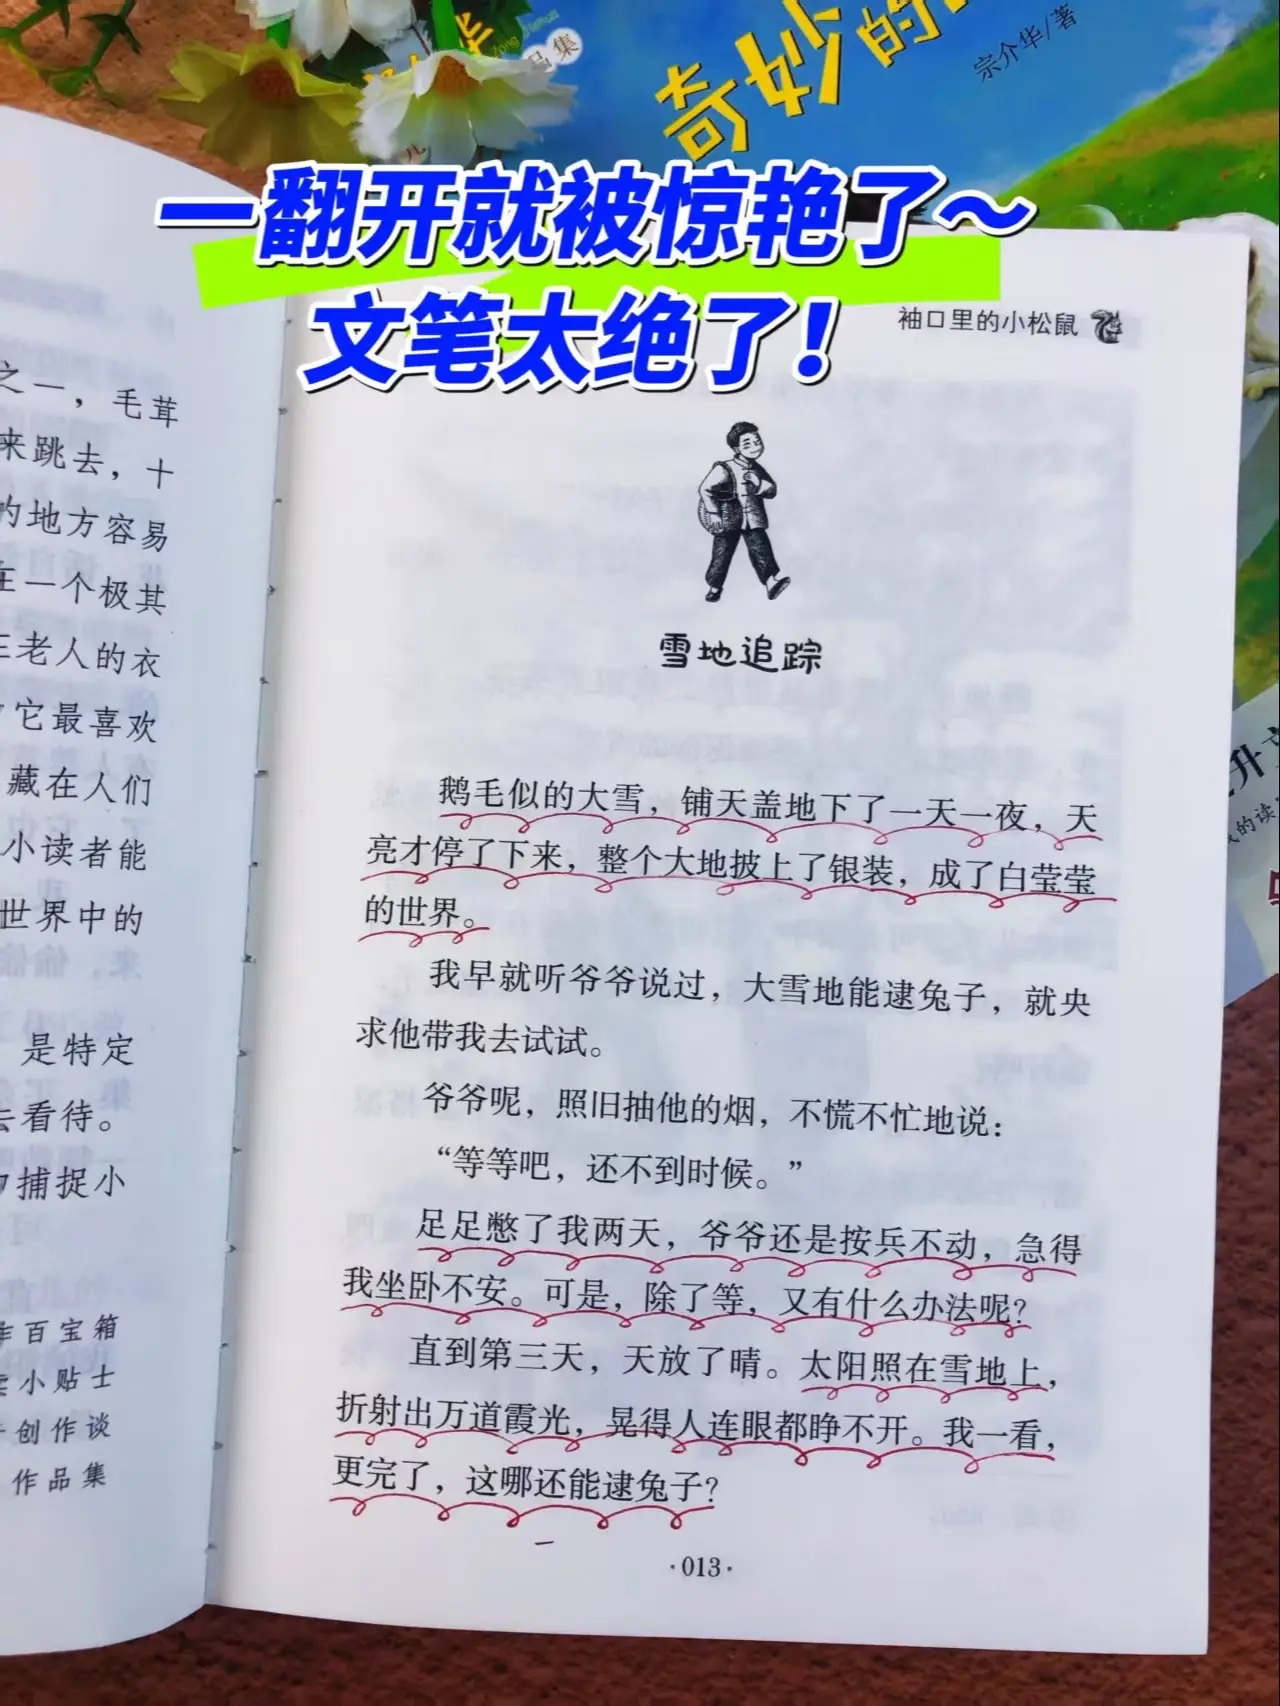 奇妙的
宗介华/著
品集
一翻开就被惊艳了～
文笔太绝了！
之一，毛茸
来跳去，十
的地方容易
在一个极其
老人的衣
它最喜欢
藏在人们
小读者能
世界中的
是特定
去看待。
捕捉小
百宝箱
小贴士
创作谈
作品集
袖口里的小松鼠
雪地追踪
鹅毛似的大雪，铺天盖地下了一天一夜，天
亮才停了下来，整个大地披上了银装，成了白莹莹
的世界。
我早就听爷爷说过，大雪地能逮兔子，就央
求他带我去试试。
爷爷呢，照旧抽他的烟，不慌不忙地说：
“等等吧，还不到时候。”
足足憋了我两天，爷爷还是按兵不动，急得
我坐卧不安。可是，除了等，又有什么办法呢？
直到第三天，天放了晴。太阳照在雪地上，
折射出万道霞光，晃得人连眼都睁不开。我一看，
更完了，这哪还能逮兔子？
·013·
升
的读